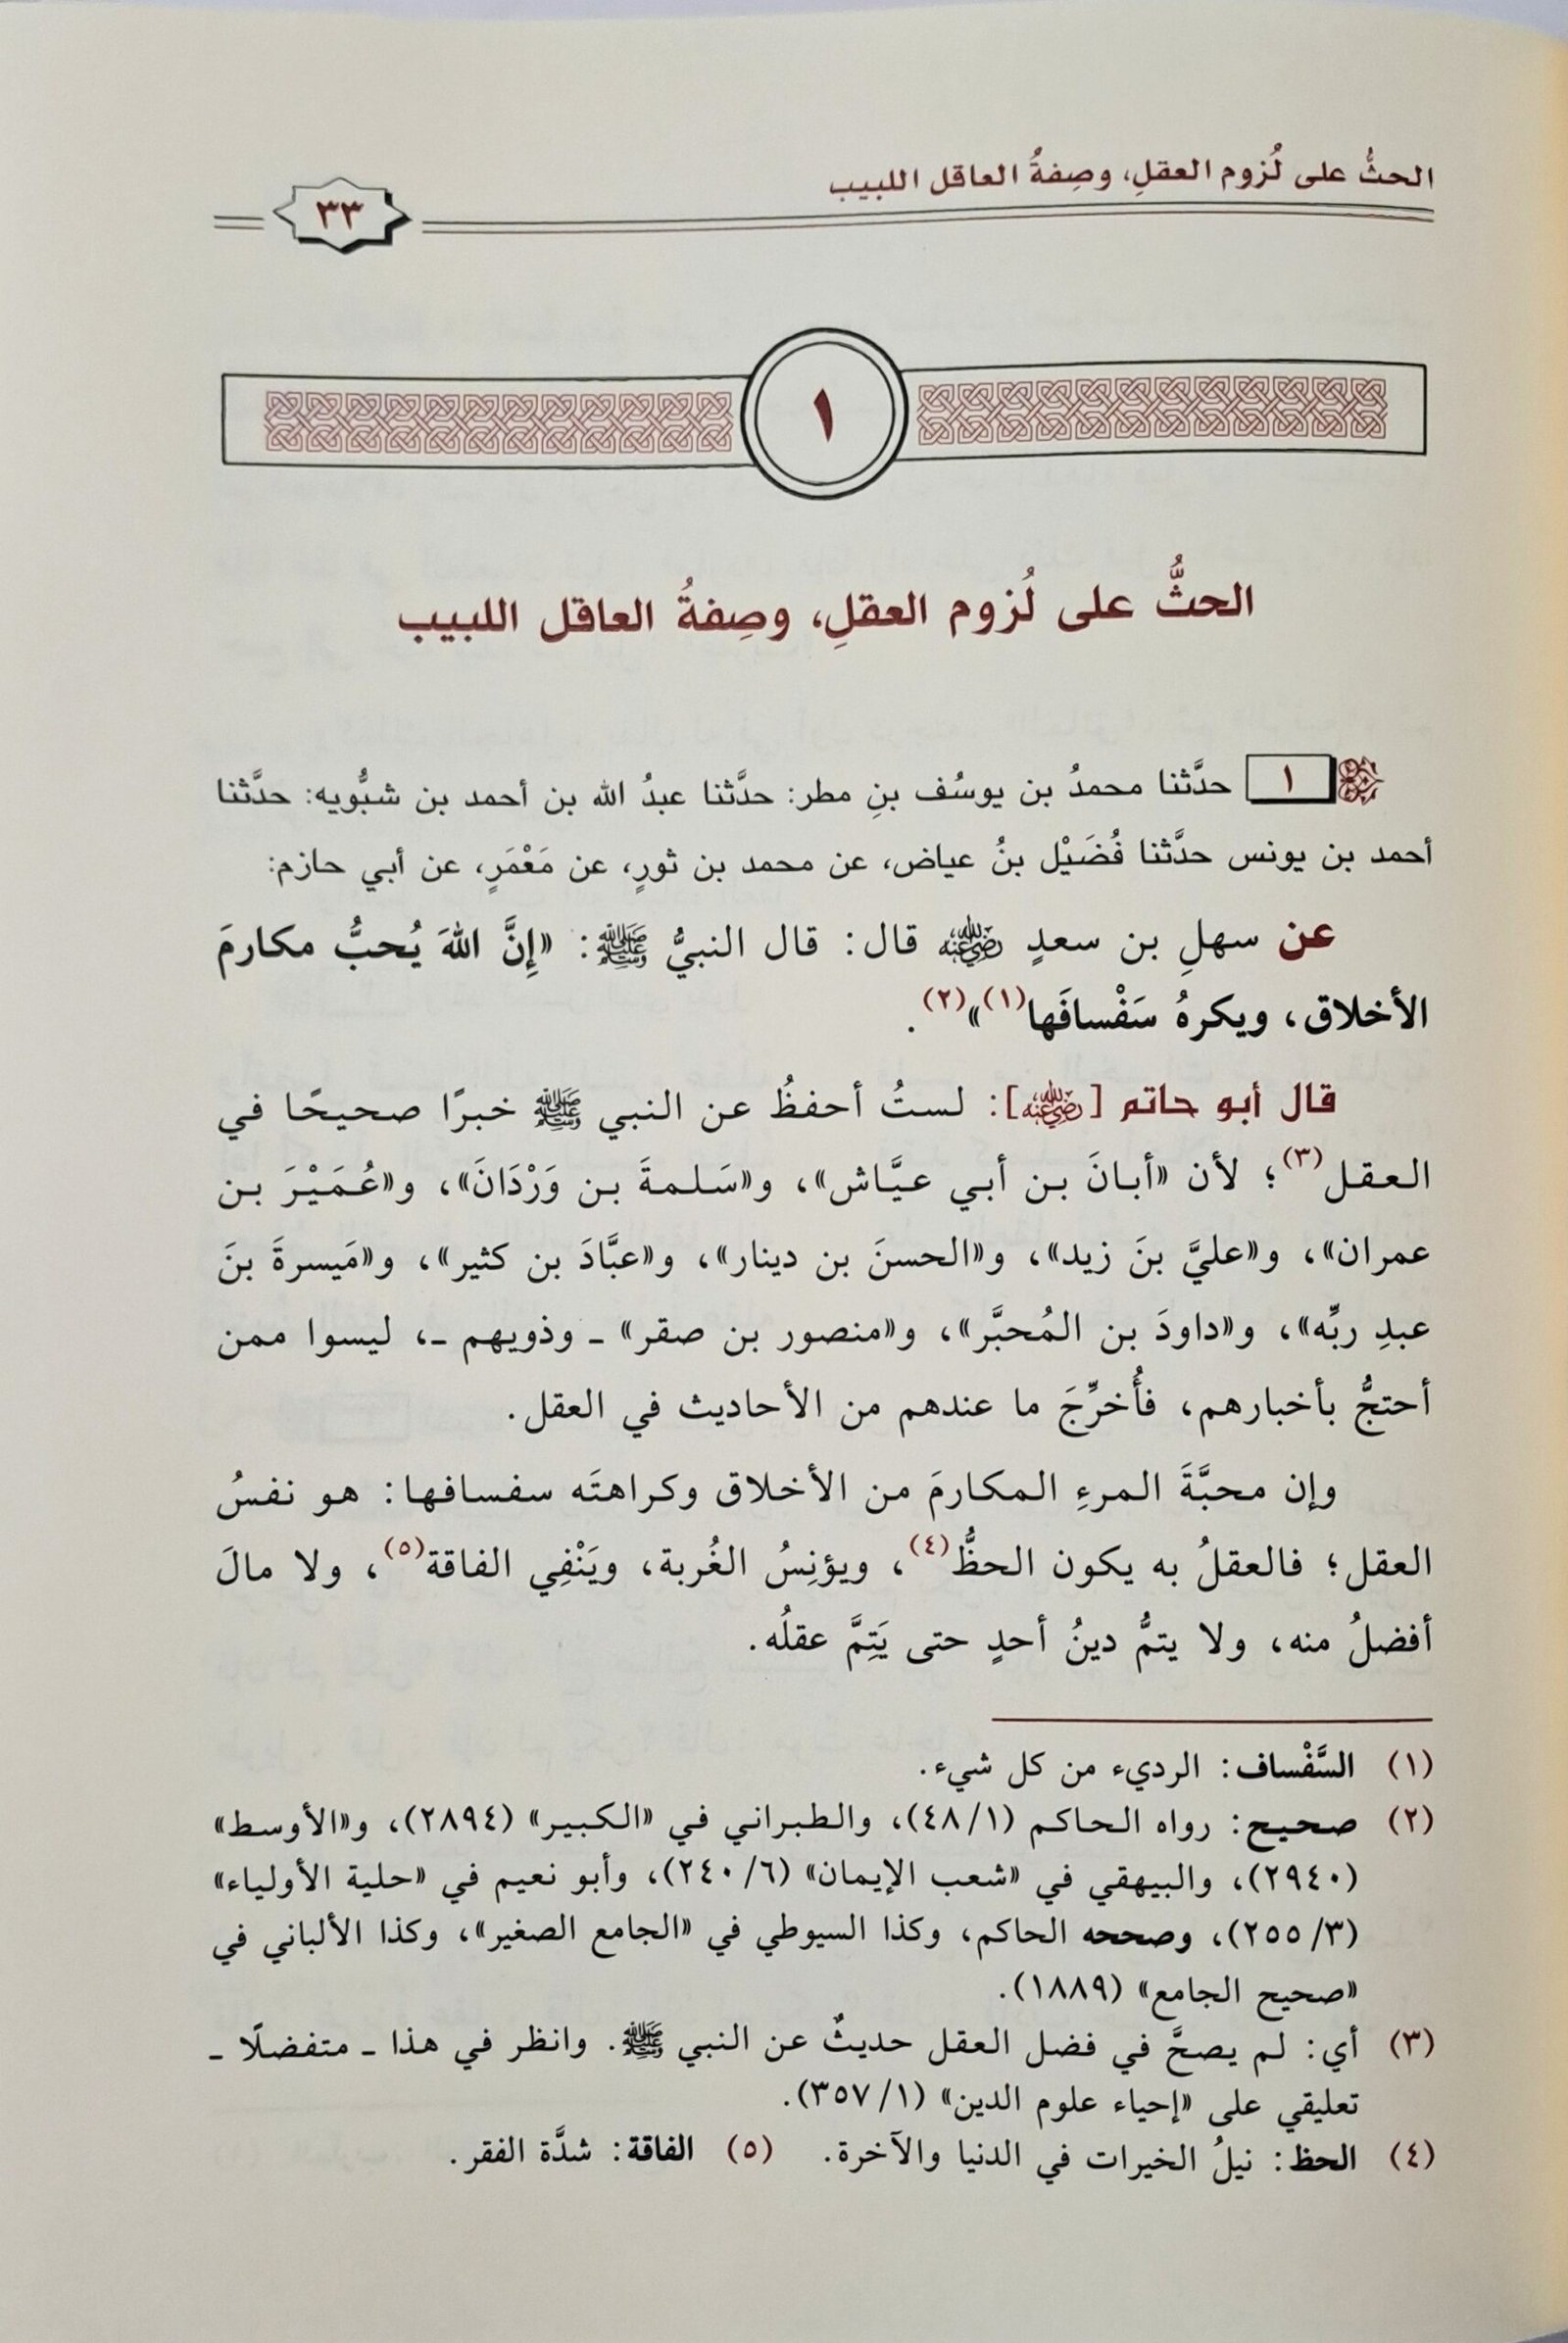 الحثُّ على لُزوم العقلِ، وصِفةُ العاقل اللبيب
٣٣
١
الحثُّ على لُزوم العقلِ، وصِفةُ العاقل اللبيب
١ حدَّثنا محمدُ بن يوسُف بنِ مطر: حدَّثنا عبدُ الله بن أحمد بن شبُّويه: حدَّثنا
أحمد بن يونس حدَّثنا فُضَيْل بنُ عياض، عن محمد بن ثورٍ، عن مَعْمَرٍ، عن أبي حازم:
عن سهلِ بن سعدٍ رضي الله عنه قال: قال النبيُّ ﷺ: «إِنَّ اللهَ يُحبُّ مكارمَ
الأخلاق، ويكرهُ سَفْسافَها(١)»(٢).
قال أبو حاتم [رضي الله عنه]: لستُ أحفظُ عن النبي ﷺ خبرًا صحيحًا في
العقل(٣)؛ لأن «أبانَ بن أبي عيَّاش»، و«سَلمةَ بن وَرْدَانَ»، و«عُمَيْرَ بن
عمران»، و«عليَّ بنَ زيد»، و«الحسنَ بن دينار»، و«عبَّادَ بن كثير»، و«مَيسرةَ بنَ
عبدِ ربِّه»، و«داودَ بن المُحبَّر»، و«منصور بن صقر» ـ وذويهم ـ، ليسوا ممن
أحتجُّ بأخبارهم، فأُخرِّجَ ما عندهم من الأحاديث في العقل.
وإن محبَّةَ المرءِ المكارمَ من الأخلاق وكراهتَه سفسافها: هو نفسُ
العقل؛ فالعقلُ به يكون الحظُّ(٤)، ويؤنِسُ الغُربة، ويَنْفِي الفاقة(٥)، ولا مالَ
أفضلُ منه، ولا يتمُّ دينُ أحدٍ حتى يَتِمَّ عقلُه.
(١) السَّفْساف: الرديء من كل شيء.
(٢) صحيح: رواه الحاكم (٤٨/١)، والطبراني في «الكبير» (٢٨٩٤)، و«الأوسط»
(٢٩٤٠)، والبيهقي في «شعب الإيمان» (٢٤٠/٦)، وأبو نعيم في «حلية الأولياء»
(٢٥٥/٣)، وصححه الحاكم، وكذا السيوطي في «الجامع الصغير»، وكذا الألباني في
«صحيح الجامع» (١٨٨٩).
(٣) أي: لم يصحَّ في فضل العقل حديثٌ عن النبي ﷺ. وانظر في هذا ـ متفضلًا ـ
تعليقي على «إحياء علوم الدين» (٣٥٧/١).
(٤) الحظ: نيلُ الخيرات في الدنيا والآخرة. (٥) الفاقة: شدَّة الفقر.